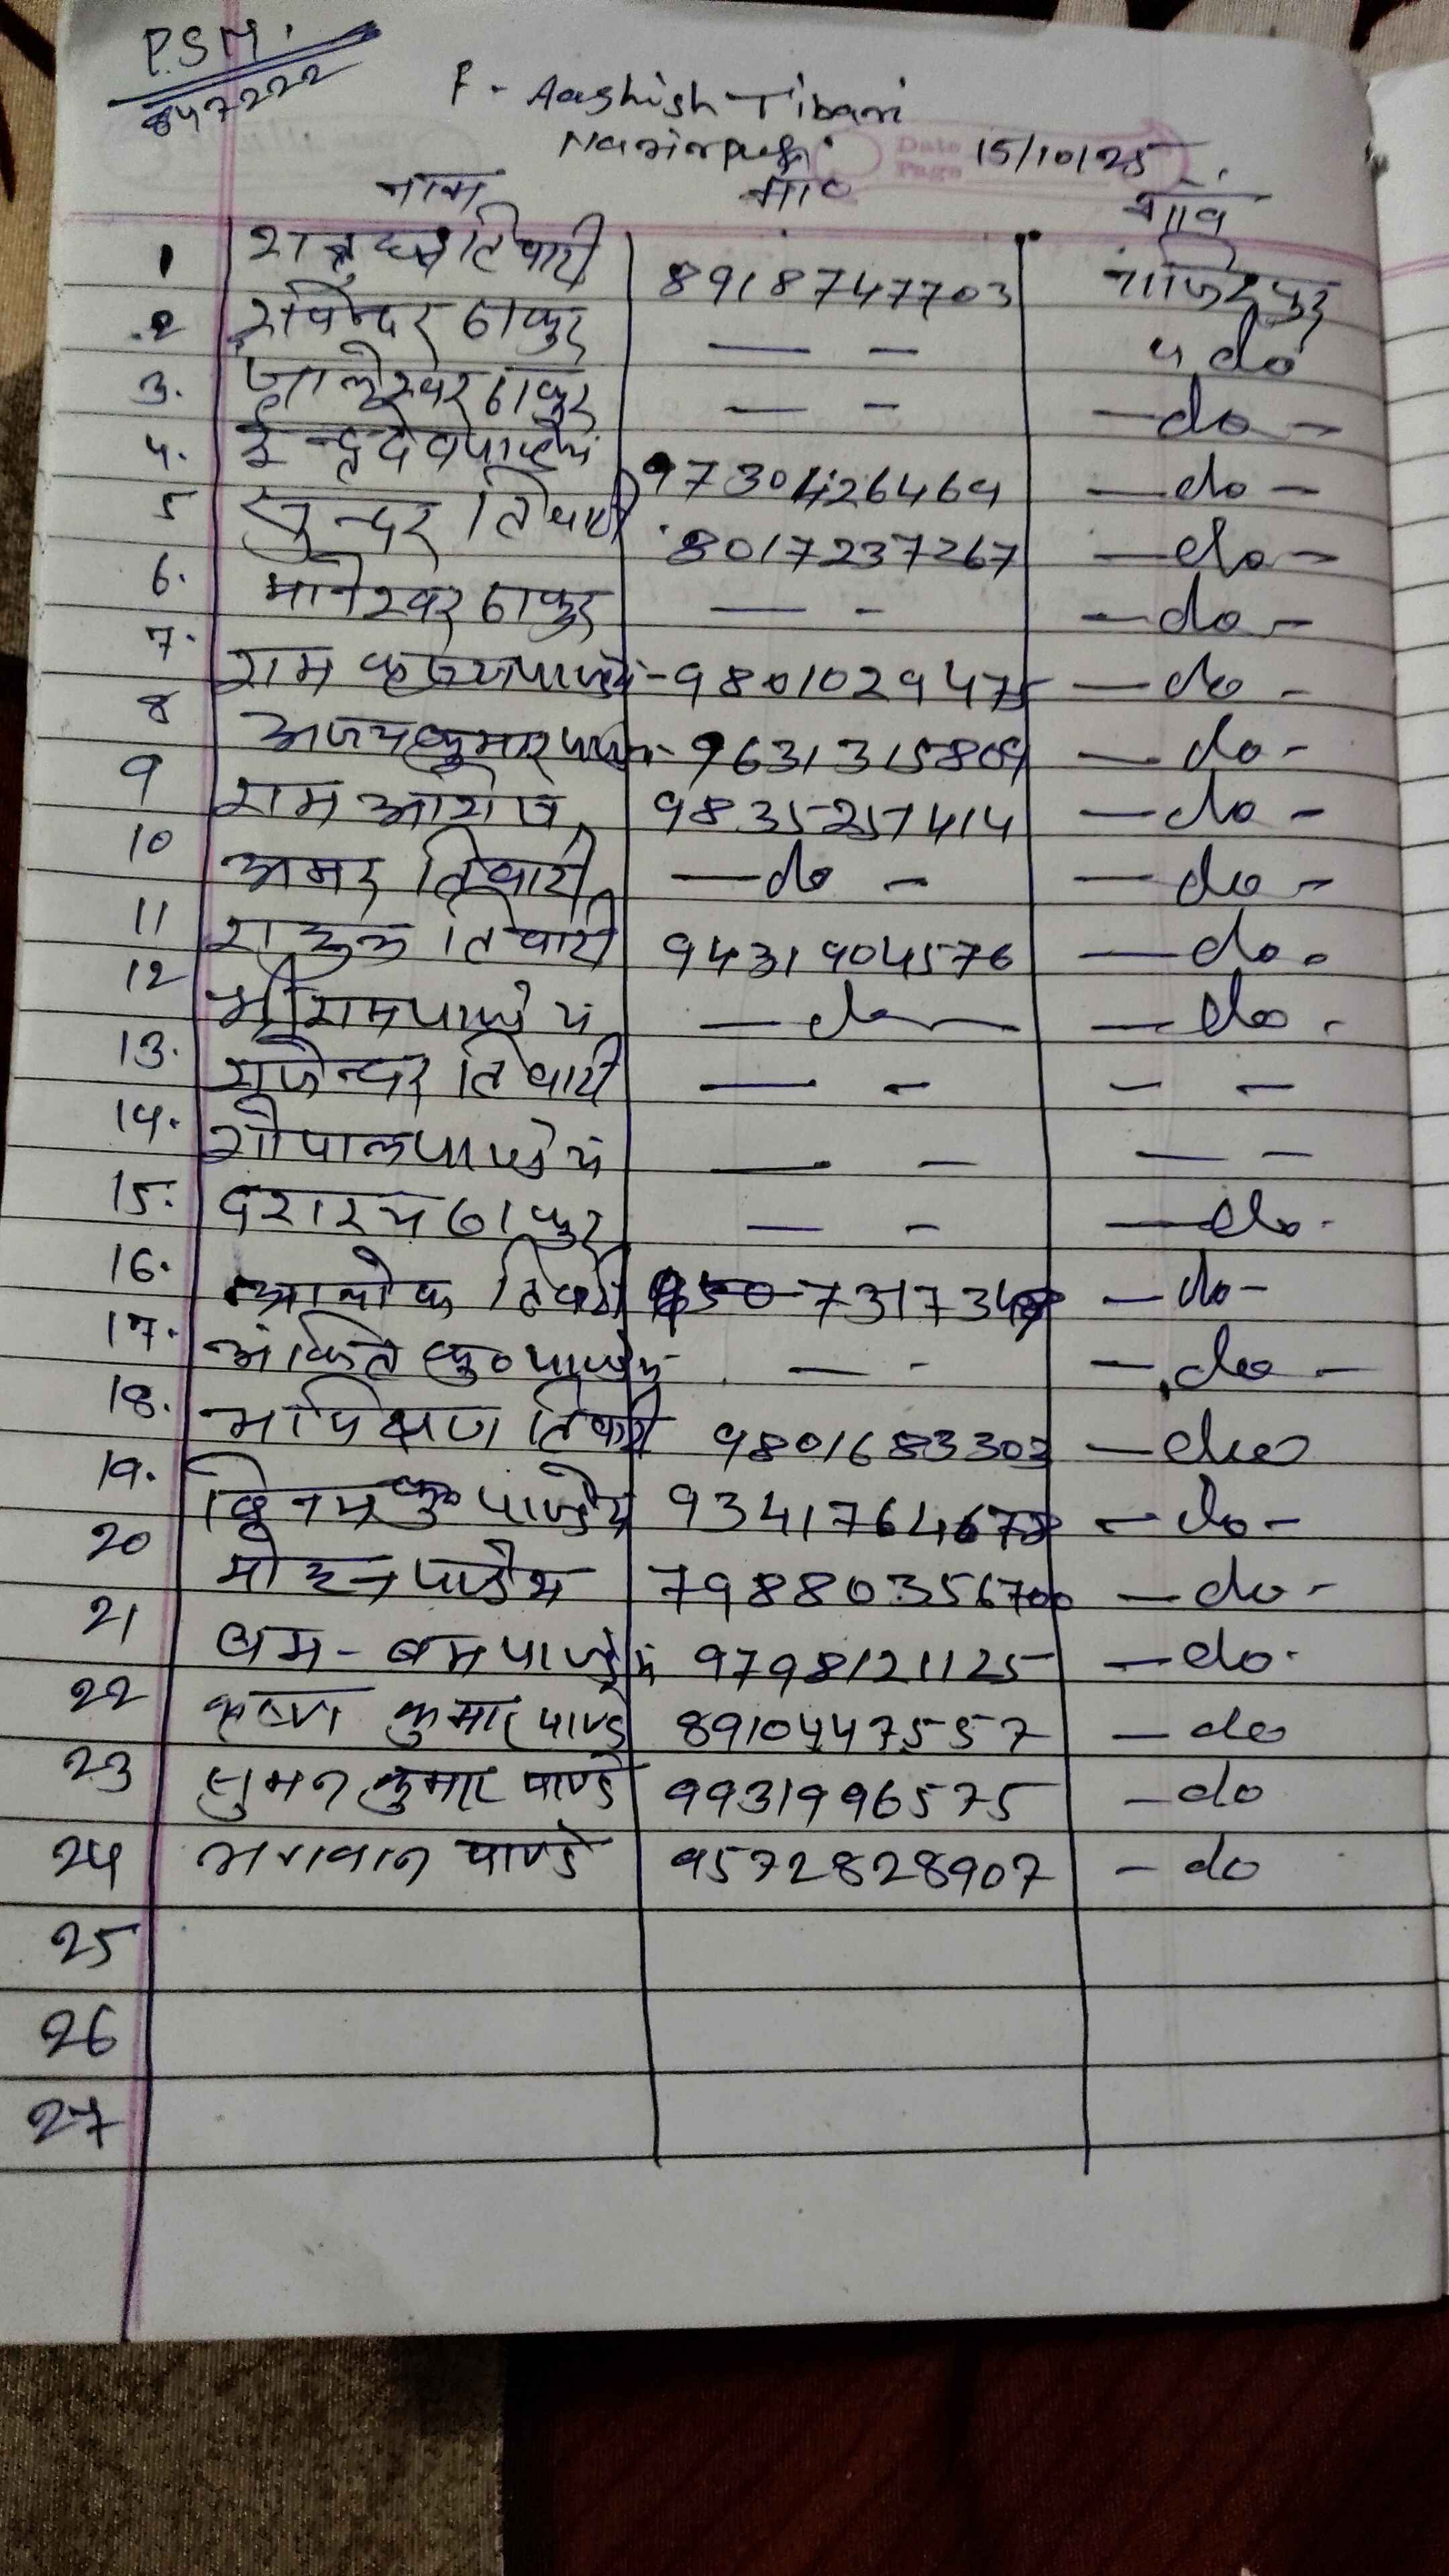 P.S.M.
847222
F - Aashish Tibari
Nazirpur
Date
Page
15/10/25
नाम मो० गांव
1 शत्रुघ्न तिवारी 8918747703 नाजिरपुर
2 रविन्दर ठाकुर — - " do
3. जालेस्वर ठाकुर — - — do -
4. ईन्द्रदेव पाण्डेय 9730426469 — do -
5 सुन्दर तिवारी 8017237267 — do -
6. मानेश्वर ठाकुर — - — do -
7. राम कृष्ण पाण्डेय - 9801029475 — do -
8 अजय कुमार पाण्डेय - 9631315809 — do -
9 राम आशीष 9835257414 — do -
10 अमर तिवारी — do - — do -
11 राहुल तिवारी 9431904576 — do -
12 श्रीराम पाण्डेय — do — — do -
13. राजेन्दर तिवारी — - - -
14. गोपाल पाण्डेय — - — -
15. दशरथ ठाकुर — - — do -
16. आलोक तिवारी — do -
17. अंकित कु० पाण्डेय — - — do -
18. तिवारी 9801683303 — do
19. कु० पाण्डेय — do -
20 मोहन पाण्डेय 798880356700 — do -
21 बम - बम पाण्डेय 9798121125 — do -
22 कृष्ण कुमार पाण्डे 8910447557 — do
23 सुमन कुमार पाण्डे 9931996575 - do
24 भगवान पाण्डे 9572828907 - do
25
26
27